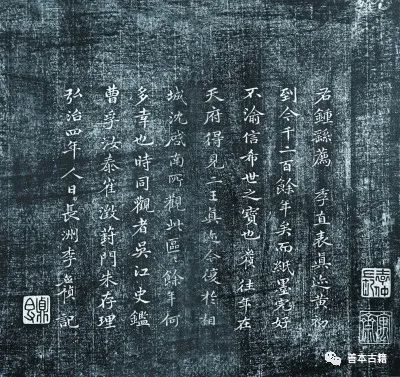 右鍾繇薦季直表真迹黄初
到今千二百餘年矣而紙墨完好
不渝信希世之寶也往年在
天府得見二王真迹今復於相
城沈啟南所觀此區區餘年何
多幸也時同觀者吳江史鑑
曹孚汝泰崔澂葑門朱存理
弘治四年人日長洲李應禎記
善本古籍